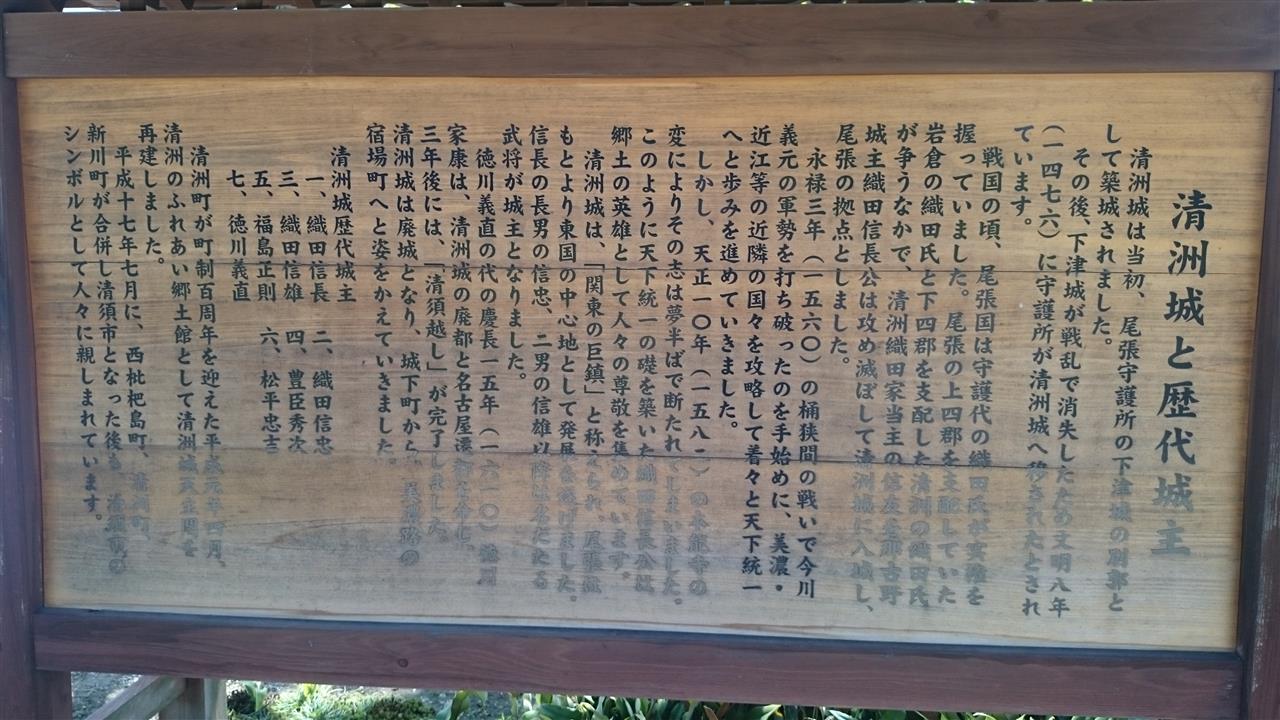 清洲城と歴代城主
清洲城は当初、尾張守護所の下津城の別郭と
して築城されました。
その後、下津城が戦乱で消失したため文明八年
(一四七六)に守護所が清洲城へ移されたとされ
ています。
戦国の頃、尾張国は守護代の織田氏が実権を
握っていました。尾張の上四郡を支配していた
岩倉の織田氏と下四郡を支配した清洲の織田氏
が争うなかで、清洲織田家当主の信友を那古野
城主織田信長公は攻め滅ぼして清洲城に入城し、
尾張の拠点としました。
永禄三年(一五六〇)の桶狭間の戦いで今川
義元の軍勢を打ち破ったのを手始めに、美濃・
近江等の近隣の国々を攻略して着々と天下統一
へと歩みを進めていきました。
しかし、天正一〇年(一五八二)の本能寺の
変によりその志は夢半ばで断たれてしまいました。
このように天下統一の礎を築いた織田信長公は、
郷土の英雄として人々の尊敬を集めています。
清洲城は、「関東の巨鎮」と称えられ、尾張は
もとより東国の中心地として発展を遂げました。
信長の長男の信忠、二男の信雄以降も名だたる
武将が城主となりました。
徳川義直の代の慶長一五年(一六一〇)徳川
家康は、清洲城の廃都と名古屋遷都を命じ、
三年後には、「清須越し」が完了しました。
清洲城は廃城となり、城下町から、美濃路の
宿場町へと姿をかえていきました。
清洲城歴代城主
一、織田信長 二、織田信忠
三、織田信雄 四、豊臣秀次
五、福島正則 六、松平忠吉
七、徳川義直
清洲町が町制百周年を迎えた平成元年四月、
清洲のふれあい郷土館として清洲城天主閣を
再建しました。
平成十七年七月に、西枇杷島町、清洲町、
新川町が合併し清須市となった後も、清須市の
シンボルとして人々に親しまれています。